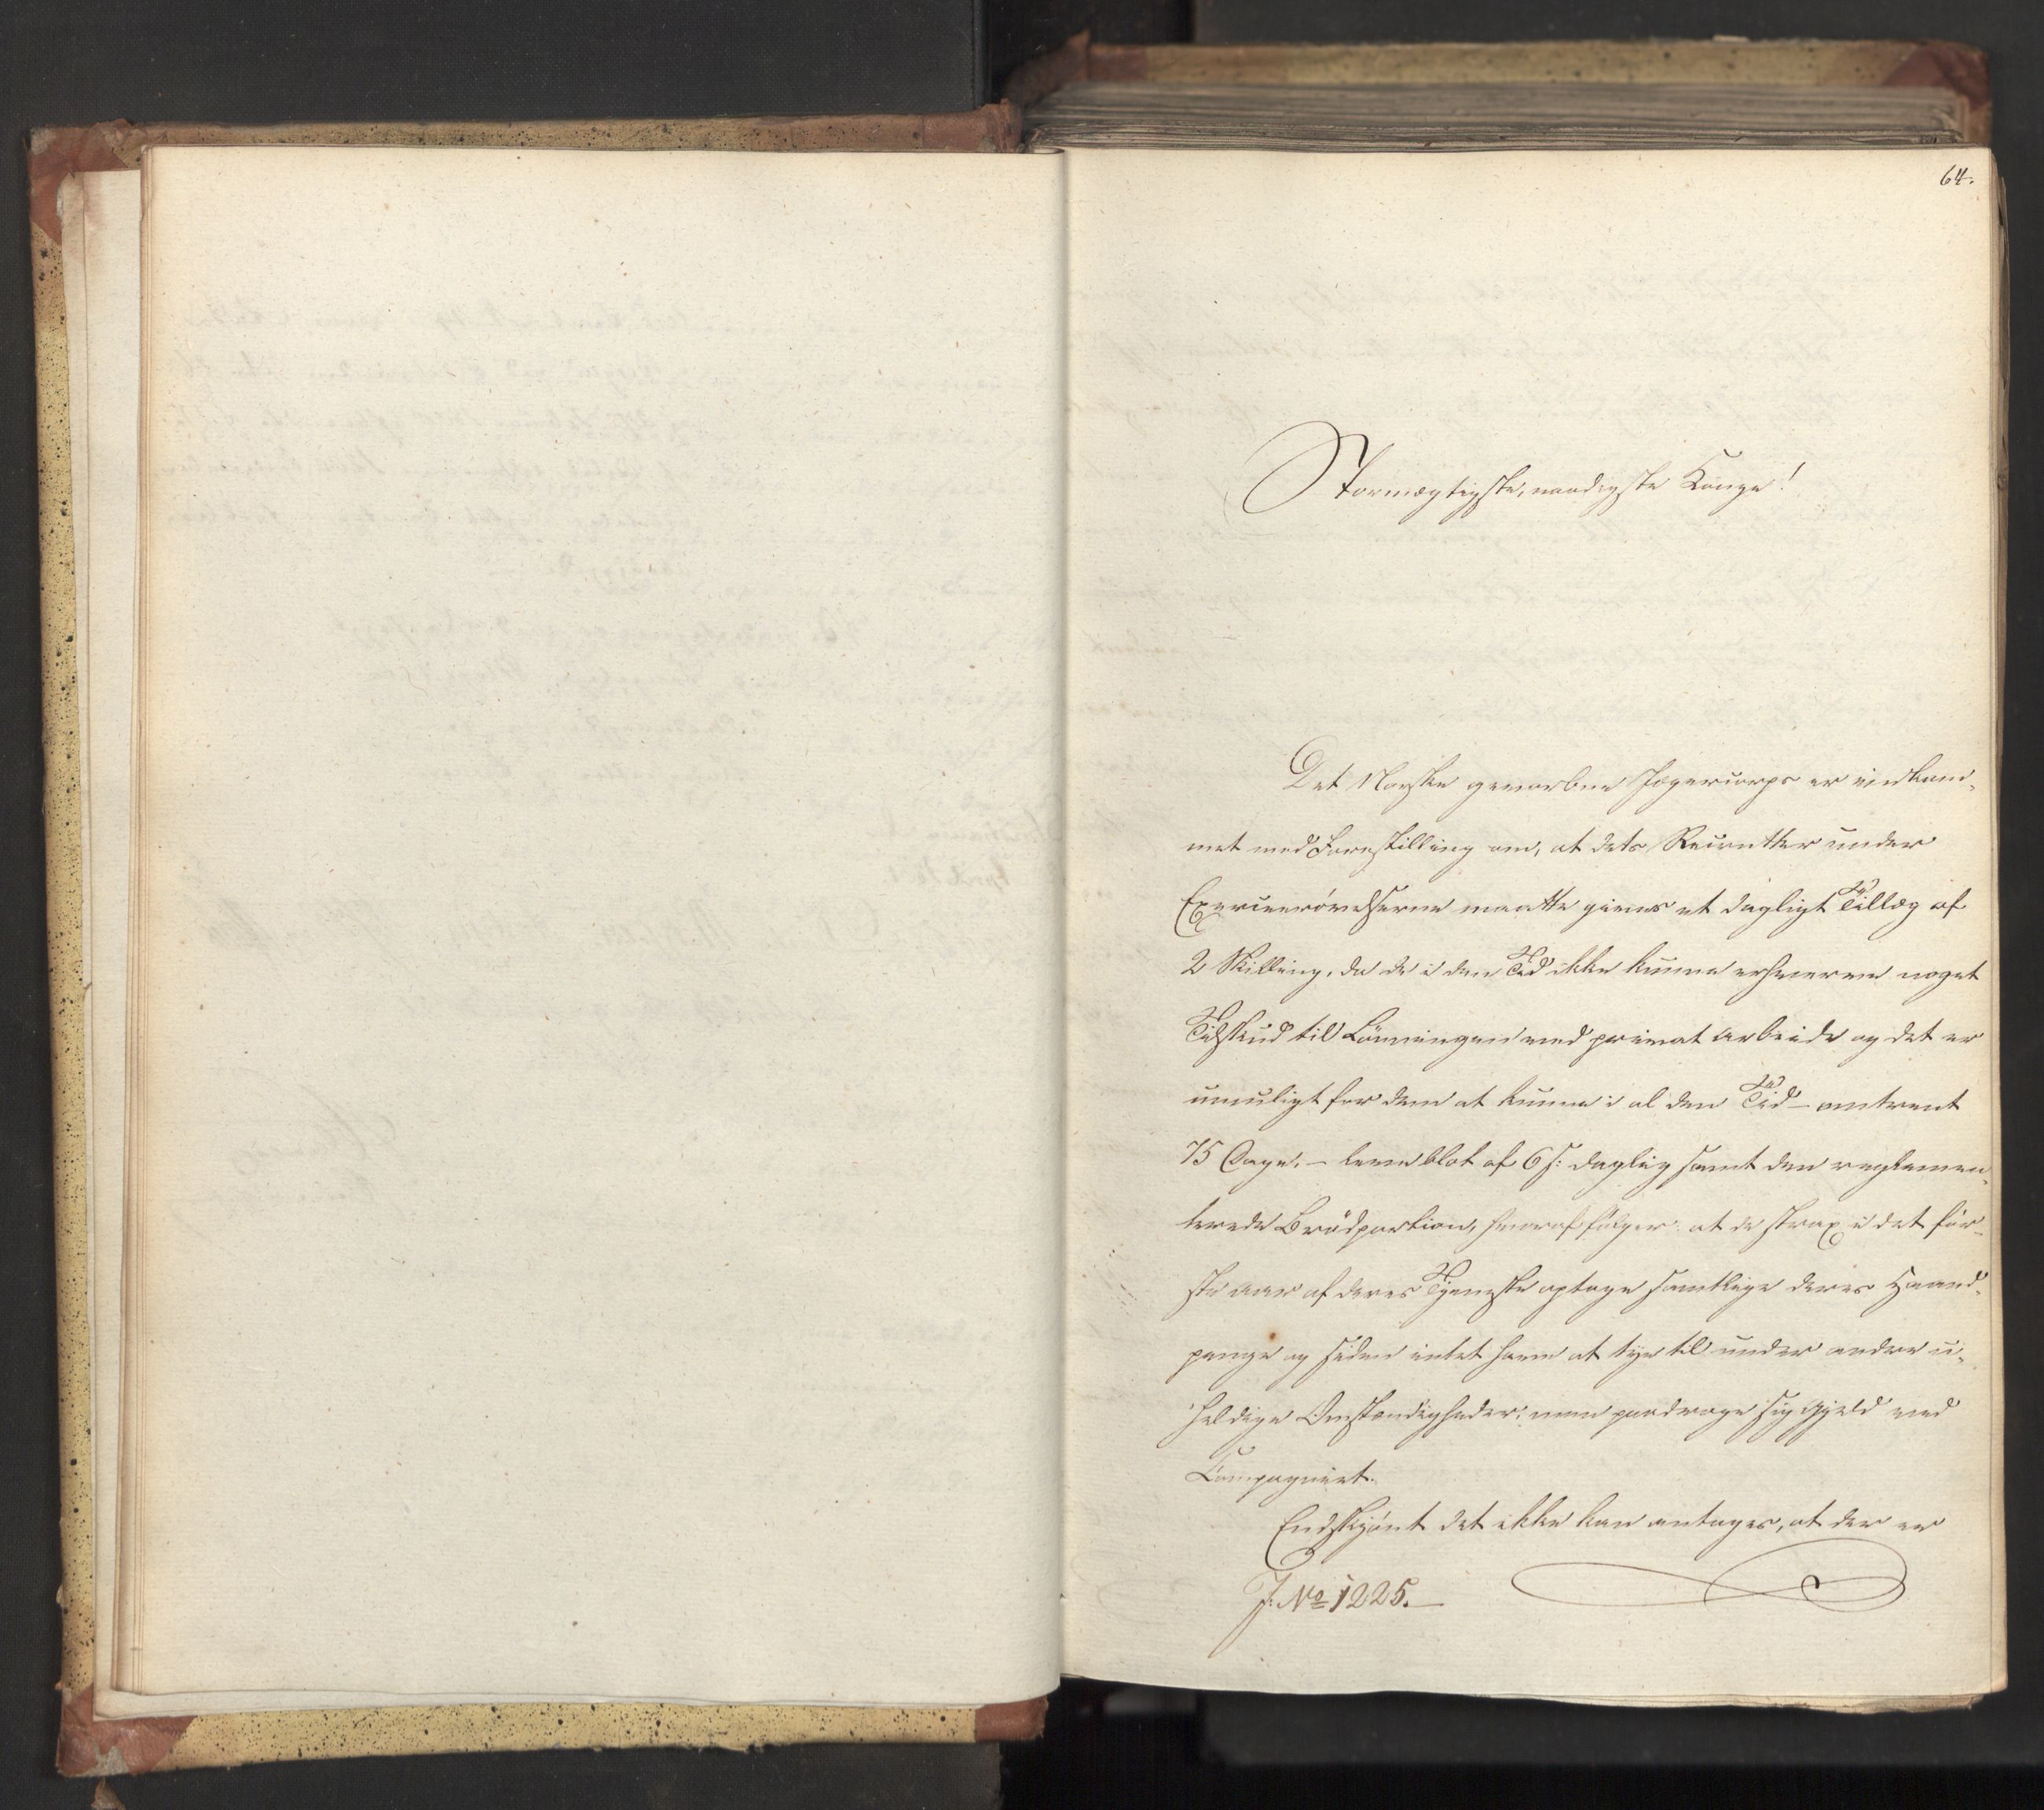 64.
Stormægtigste, naadigste Konge!
Det Norske gevorbne Jægercorps er indkom-
met med Forestilling om, at dets Recrutter under
Exerceerøvelserne maatte gives et dagligt Tillæg af
2 Skilling, da de i den Tid ikke kunne erhverve noget
Tilskud til Lønningen ved privat Arbeide og det er
umuligt for dem at kunne i al den Tid – omtrent
75 Dage, – leve blot af 6 s: daglig samt den reglemen-
terede Brødportion, hvoraf følger at de strax i det för-
ste Aar af deres Tjeneste optage samtlige deres Haand-
penge og siden intet have at tye til under andre u-
heldige Omstændigheder, men paadrage sig Gjeld ved
Compagniet.
Endskjønt det ikke kan antages, at der er
J. No 1225.